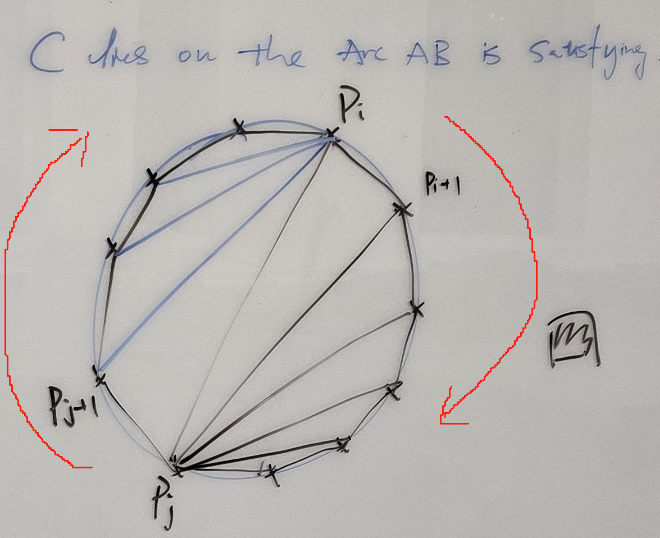 C lies on the Arc AB is satisfying
Pi
Pi+1
Pj+1
Pj